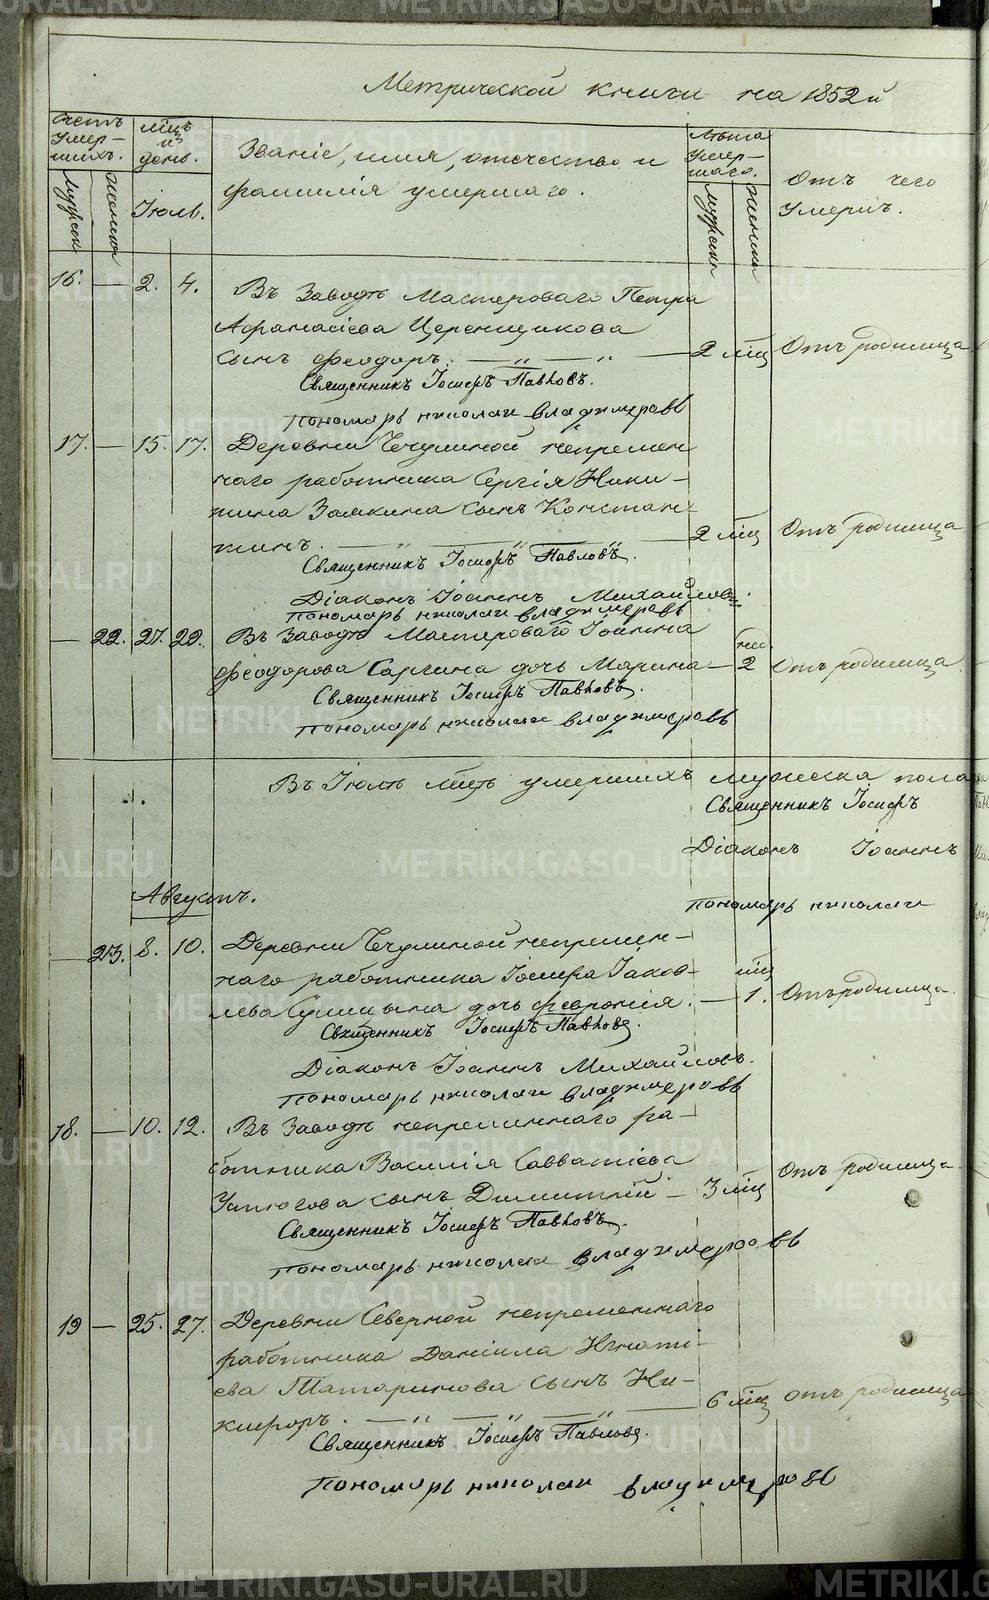 Метрической книги на 1852 й
Счетъ умершихъ.
мѣцъ и день.
Званіе, имя, отечество и фамилія умершаго.
Лѣта умершаго.
Отъ чего умеръ.
Мужск
Женска
Іюль.
Мужска
Женска
16. — 2. 4. Въ Заводѣ Мастероваго Петра
Афанасіева Черемщикова
сынъ Феодоръ. — „ — „ — 2 мѣц Отъ родимца
Священникъ Іосифъ Павловъ.
Пономарь Николай Владимеровъ
17. — 15. 17. Деревни Чечулиной непремен-
наго работника Сергія Ники-
тина Замкина сынъ Констан-
тинъ. — „ — „ — „ — 2 мѣц Отъ родимца
Священникъ Іосифъ Павловъ.
Діаконъ Іоаннъ Михайловъ.
Пономарь Николай Владимеровъ
— 22. 27. 29. Въ Заводѣ Мастероваго Іоанна
Феодорова Саргина дочь Марина — мѣс. 2 Отъ родимца
Священникъ Іосифъ Павловъ.
Пономарь Николай Владимеровъ
Въ Іюлѣ мѣцѣ умершихъ мужеска пола
Священникъ Іосифъ
Діаконъ Іоаннъ
Пономарь Николай
Августъ.
— 23. 8. 10. Деревни Чечулиной непремен-
наго работника Іосифа Іаков-
лева дочь Февронія. — мѣц 1. Отъ родимца.
Священникъ Іосифъ Павловъ.
Діаконъ Іоаннъ Михайловъ.
Пономарь Николай Владимеровъ
18. — 10. 12. Въ Заводѣ непременнаго ра-
ботника Василія Савватіева
Устюгова сынъ Димитрій — 3 мѣц Отъ родимца.
Священникъ Іосифъ Павловъ.
Пономарь Николай Владимеровъ
19 — 25. 27. Деревни Северной непременнаго
работника Даніила Игнаті-
ева Татаринова сынъ Ни-
кифоръ. — „ — „ — „ — 6 мѣц Отъ родимца
Священникъ Іосифъ Павловъ.
Пономарь Николай Владимеровъ
METRIKI.GASO-URAL.RU